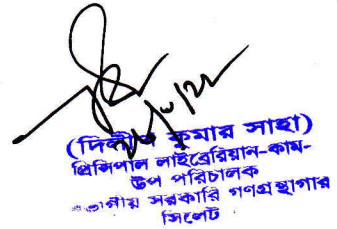 ২৮/৮/২২
(দিলীপ কুমার সাহা)
প্রিন্সিপাল লাইব্রেরিয়ান-কাম-
উপ পরিচালক
বিভাগীয় সরকারি গণগ্রন্থাগার
সিলেট